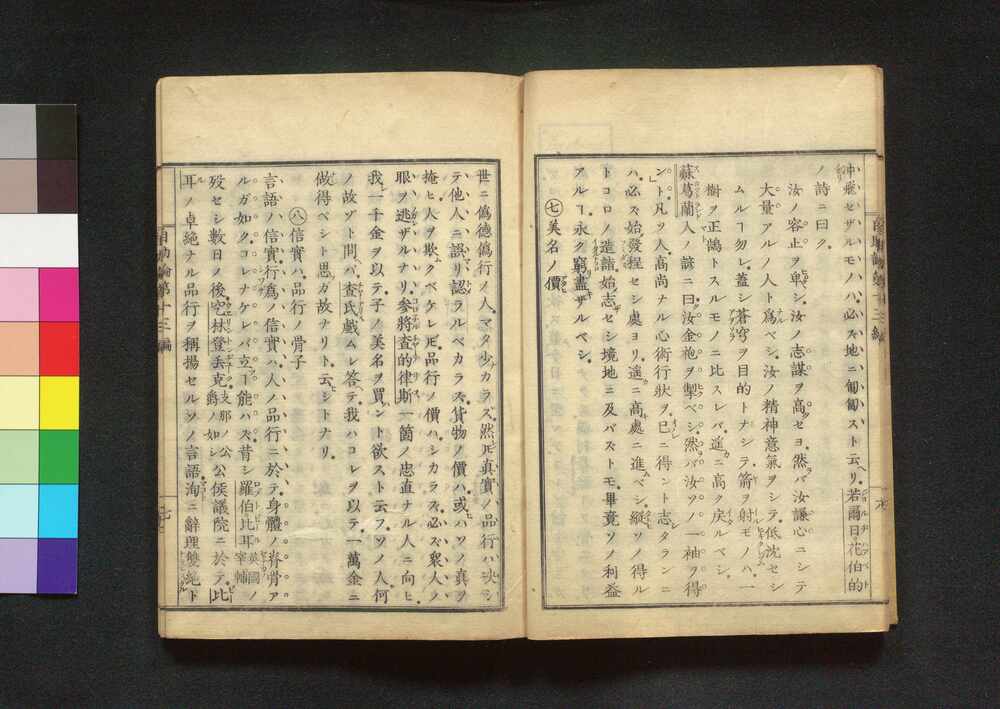 沖飛セザルモノハ必ズ地ニ匍匐スト云ヘリ若爾日花伯的
ノ詩ニ曰ク
汝ノ容止ヲ卑シ汝ノ志謀ヲ高クセヨ然ラバ汝謙心ニシテ
大量アルノ人ト為ルベシ汝ノ精神意氣ヲシテ低沈セシ
ムルヿ勿レ蓋シ蒼穹ヲ目的トナシテ箭ヲ射ルモノハ一
樹ヲ正鵠トスルモノニ比スレバ遙カニ高ク戻ルベシ
蘇葛蘭人ノ諺ニ曰ク汝金袍ヲ掣ケベシ然ラバ汝ソノ一袖ヲ得
ント凡ソ人高尚ナル心術行狀ヲ巳ニ得ント志シタランニ
ハ必ズ始メ發程セシ處ヨリ遙カニ高處ニ進ムベシ縦ヒソノ得ル
トコロノ造詣始メ志セシ境地ニ及バズトモ畢竟ソノ利益
アルヿ永ク窮盡セザルベシ
㊆美名ノ價
世ニ偽德偽行ノ人マタ少ナカラズ然レ𪜈真實ノ品行ハ決シ
テ他人ニ誤リ認メラルベカラズ貨物ノ價ハ或ハソノ真ヲ
掩ヒ人ヲ欺クベケレ𪜈品行ノ價ハシカラズ必ズ衆人ノ
眼ヲ逃レザルナリ參將査的律斯一箇ノ忠直ナル人ニ向ヒ
我レ一千金ヲ以テ子ノ美名ヲ買ハント欲スト云フソノ人何
ノ故ゾト問ヘバ査氏戲ムレ答テ我ハコレヲ以テ一萬金ニ
做シ得ベシト思フガ故ナリト云シトナリ
㊇信實ハ品行ノ骨子
言語ノ信實行為ノ信實ハ人ノ品行ニ於テ身體ノ脊骨ア
ルガ如クコレナケレバ立ツヿ能ハズ昔シ羅伯比耳英國ノ宰輔
歿セシ數日ノ後空林登丟克爵ノ如シ支那ノ公公侯議院ニ於テ此
耳ノ卓絶ナル品行ヲ稱揚セルソノ言語洵ニ辭理雙絶ト
自助論第十三編